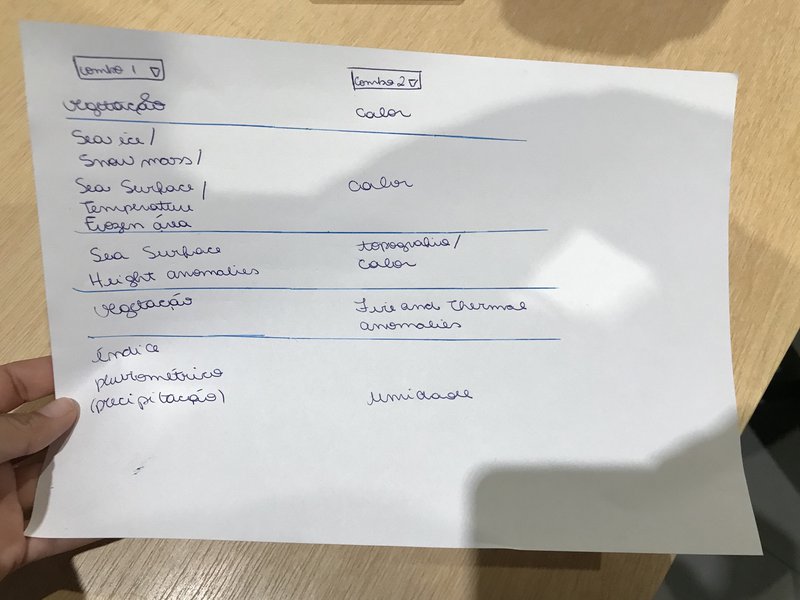 Combo 1 Combo 2
vegetação calor
Sea ice /
Snow mass /
Sea Surface / calor
Temperature
Frozen área
Sea Surface topografia /
Height anomalies calor
vegetação Fire and Thermal
anomalies
Índice
pluviométrico
(precipitação) umidade